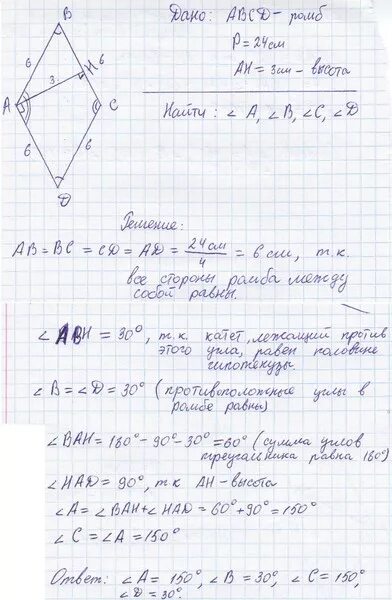 B
Дано: ABCD - ромб
P = 24см
AH = 3см - высота
Найти: ∠A, ∠B, ∠C, ∠D
6
H
6
3
A
C
6
6
D
Решение:
AB = BC = CD = AD = 24см/4 = 6см, т.к.
все стороны ромба между
собой равны.
∠ABH = 30°, т.к. катет, лежащий против
этого угла, равен половине
гипотенузы.
∠B = ∠D = 30° (противоположные углы в
ромбе равны)
∠BAH = 180° - 90° - 30° = 60° (сумма углов
треугольника равна 180°)
∠HAD = 90°, т.к AH - высота
∠A = ∠BAH + ∠HAD = 60° + 90° = 150°
∠C = ∠A = 150°
Ответ: ∠A = 150°, ∠B = 30°, ∠C = 150°,
∠D = 30°.